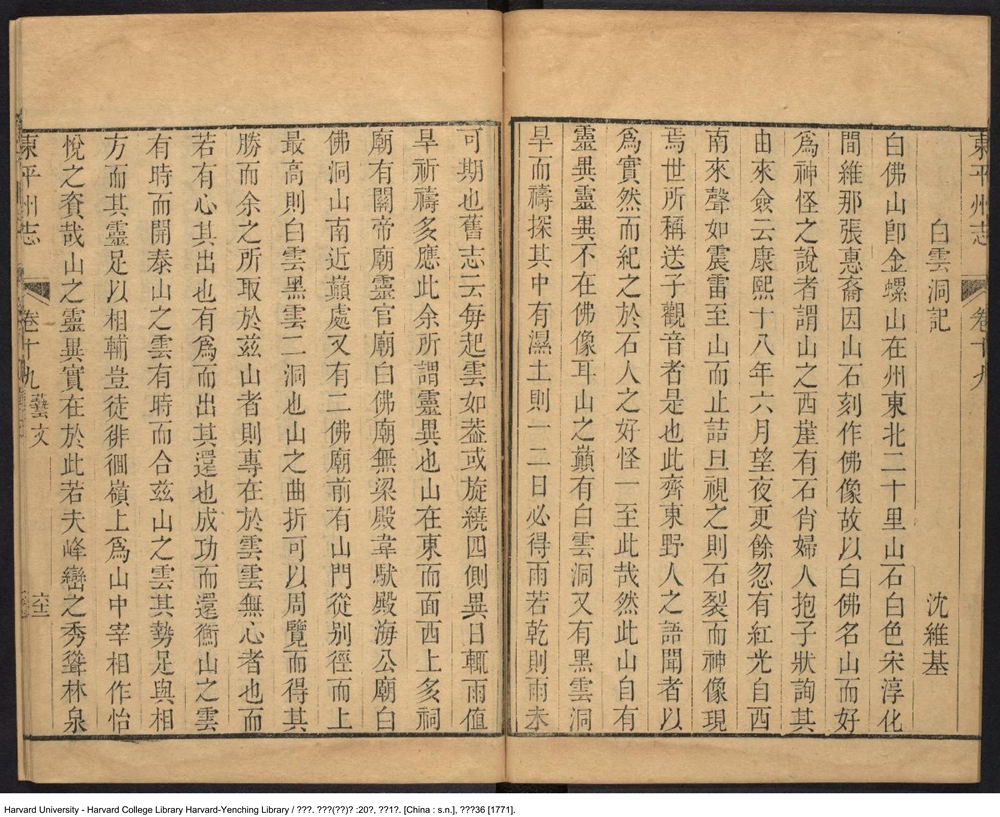 東平州志
卷十九
白雲洞記
沈維基
白佛山卽金螺山在州東北二十里山石白色宋淳化
間維那張惠裔因山石刻作佛像故以白佛名山而好
爲神怪之說者謂山之西崖有石肖婦人抱子狀詢其
由來僉云康熙十八年六月望夜更餘忽有紅光自西
南來聲如震雷至山而止詰旦視之則石裂而神像現
焉世所稱送子觀音者是也此齊東野人之語聞者以
爲實然而紀之於石人之好怪一至此哉然此山自有
靈異靈異不在佛像耳山之巔有白雲洞又有黑雲洞
旱而禱探其中有濕土則一二日必得雨若乾則雨未
可期也舊志云每起雲如葢或旋繞四側異日輒雨值
旱祈禱多應此余所謂靈異也山在東而面西上多祠
廟有關帝廟靈官廟白佛廟無梁殿韋馱殿海公廟白
佛洞山南近巔處又有二佛廟前有山門從别徑而上
最高則白雲黑雲二洞也山之曲折可以周覽而得其
勝而余之所取於茲山者則專在於雲雲無心者也而
若有心其出也有爲而出其還也成功而還衡山之雲
有時而開泰山之雲有時而合茲山之雲其勢足與相
方而其靈足以相輔豈徒徘徊嶺上爲山中宰相作怡
悅之資哉山之靈異實在於此若夫峰巒之秀聳林泉
東平州志
卷十九
藝文
Harvard University - Harvard College Library Harvard-Yenching Library / ???. ???(??)? :20?, ??1?. [China : s.n.], ???36 [1771].